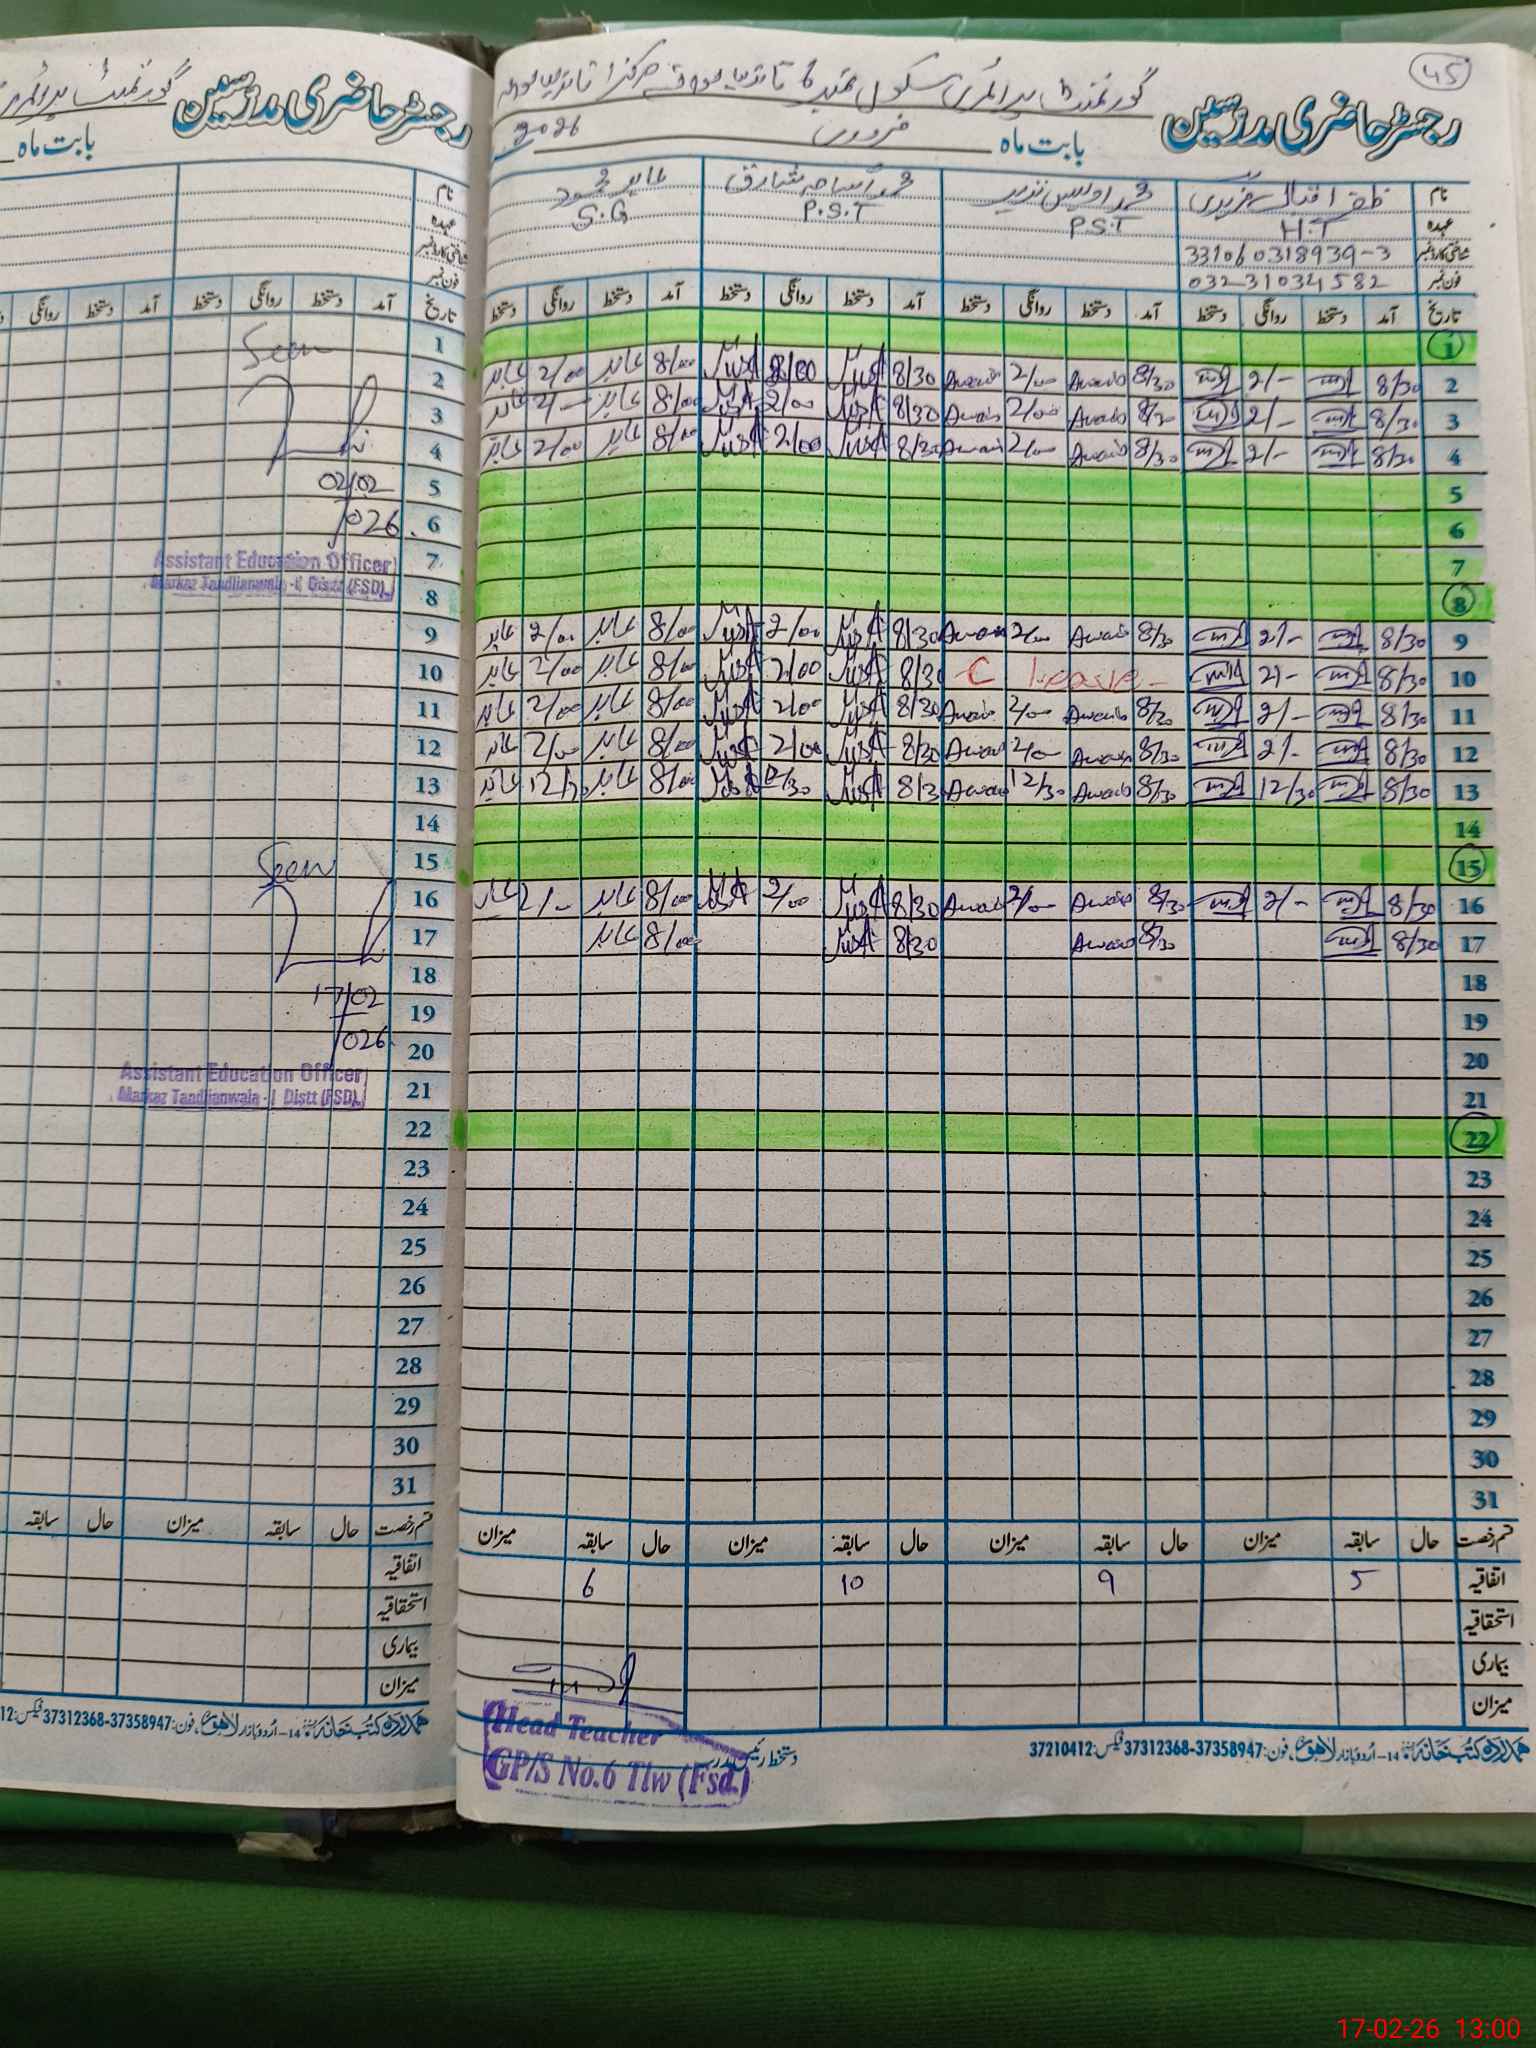 45
گورنمنٹ پرائمری سکول نمبر 6 تاندلیانوالہ مرکز 1 تاندلیانوالہ
رجسٹر حاضری مدرسین
بابت ماہ فروری 2026
نام ظفر اقبال فریدی محمد اویس نذیر محمد اسامہ شارق عابد محمود
عہدہ H.T P.S.T P.S.T S.G
شناختی کارڈ نمبر 331060318939-3
فون نمبر 03231034582
تاریخ آمد دستخط روانگی دستخط آمد دستخط روانگی دستخط آمد دستخط روانگی دستخط آمد دستخط روانگی دستخط
1
2 8/30 2/- 8/30 Awais 2/00 Awais 8/30 8/00 8/00 عابد 2/00 عابد
3 8/30 2/- 8/30 Awais 2/00 Awais 8/30 2/00 8/00 عابد 2/- عابد
4 8/30 2/- 8/30 Awais 2/00 Awais 8/30 2/00 8/00 عابد 2/00 عابد
5
6
7
8
9 8/30 2/- 8/30 Awais 2/00 Awais 8/30 2/00 8/00 عابد 2/00 عابد
10 8/30 2/- C leave - 8/30 2/00 8/00 عابد 2/00 عابد
11 8/30 2/- 8/30 Awais 2/00 Awais 8/30 2/00 8/00 عابد 2/00 عابد
12 8/30 2/- 8/30 Awais 2/00 Awais 8/30 2/00 8/00 عابد 2/00 عابد
13 8/30 12/30 8/30 Awais 12/30 Awais 8/30 12/30 8/00 عابد 12/30 عابد
14
15
16 8/30 2/- 8/30 Awais 2/00 Awais 8/30 2/00 8/00 عابد 2/- عابد
17 8/30 8/30 Awais 8/30 8/00 عابد
18
19
20
21
22
23
24
25
26
27
28
29
30
31
قسم رخصت حال سابقہ میزان حال سابقہ میزان حال سابقہ میزان حال سابقہ میزان
اتفاقیہ 5 9 10 6
استحقاقیہ
بیماری
میزان
دستخط رئیس مدرسہ
Head Teacher
GP/S No.6 Tlw (Fsd.)
ہمدرد کتب خانہ 14-اردو بازار لاہور، فون: 37358947-37312368 فیکس: 37210412
گورنمنٹ پرائمری
رجسٹر حاضری مدرسین
بابت ماہ
نام
عہدہ
شناختی کارڈ نمبر
فون نمبر
تاریخ آمد دستخط روانگی دستخط آمد دستخط روانگی
1
2
3
4
5
6
7
8
9
10
11
12
13
14
15
16
17
18
19
20
21
22
23
24
25
26
27
28
29
30
31
Seen
02/02
/026
Assistant Education Officer
Markaz Tandlianwala - I Distt (FSD)
Seen
17/02
/026
Assistant Education Officer
Markaz Tandlianwala - I Distt (FSD)
قسم رخصت حال سابقہ میزان حال سابقہ
اتفاقیہ
استحقاقیہ
بیماری
میزان
ہمدرد کتب خانہ 14-اردو بازار لاہور، فون: 37358947-37312368 فیکس: 12
17-02-26 13:00